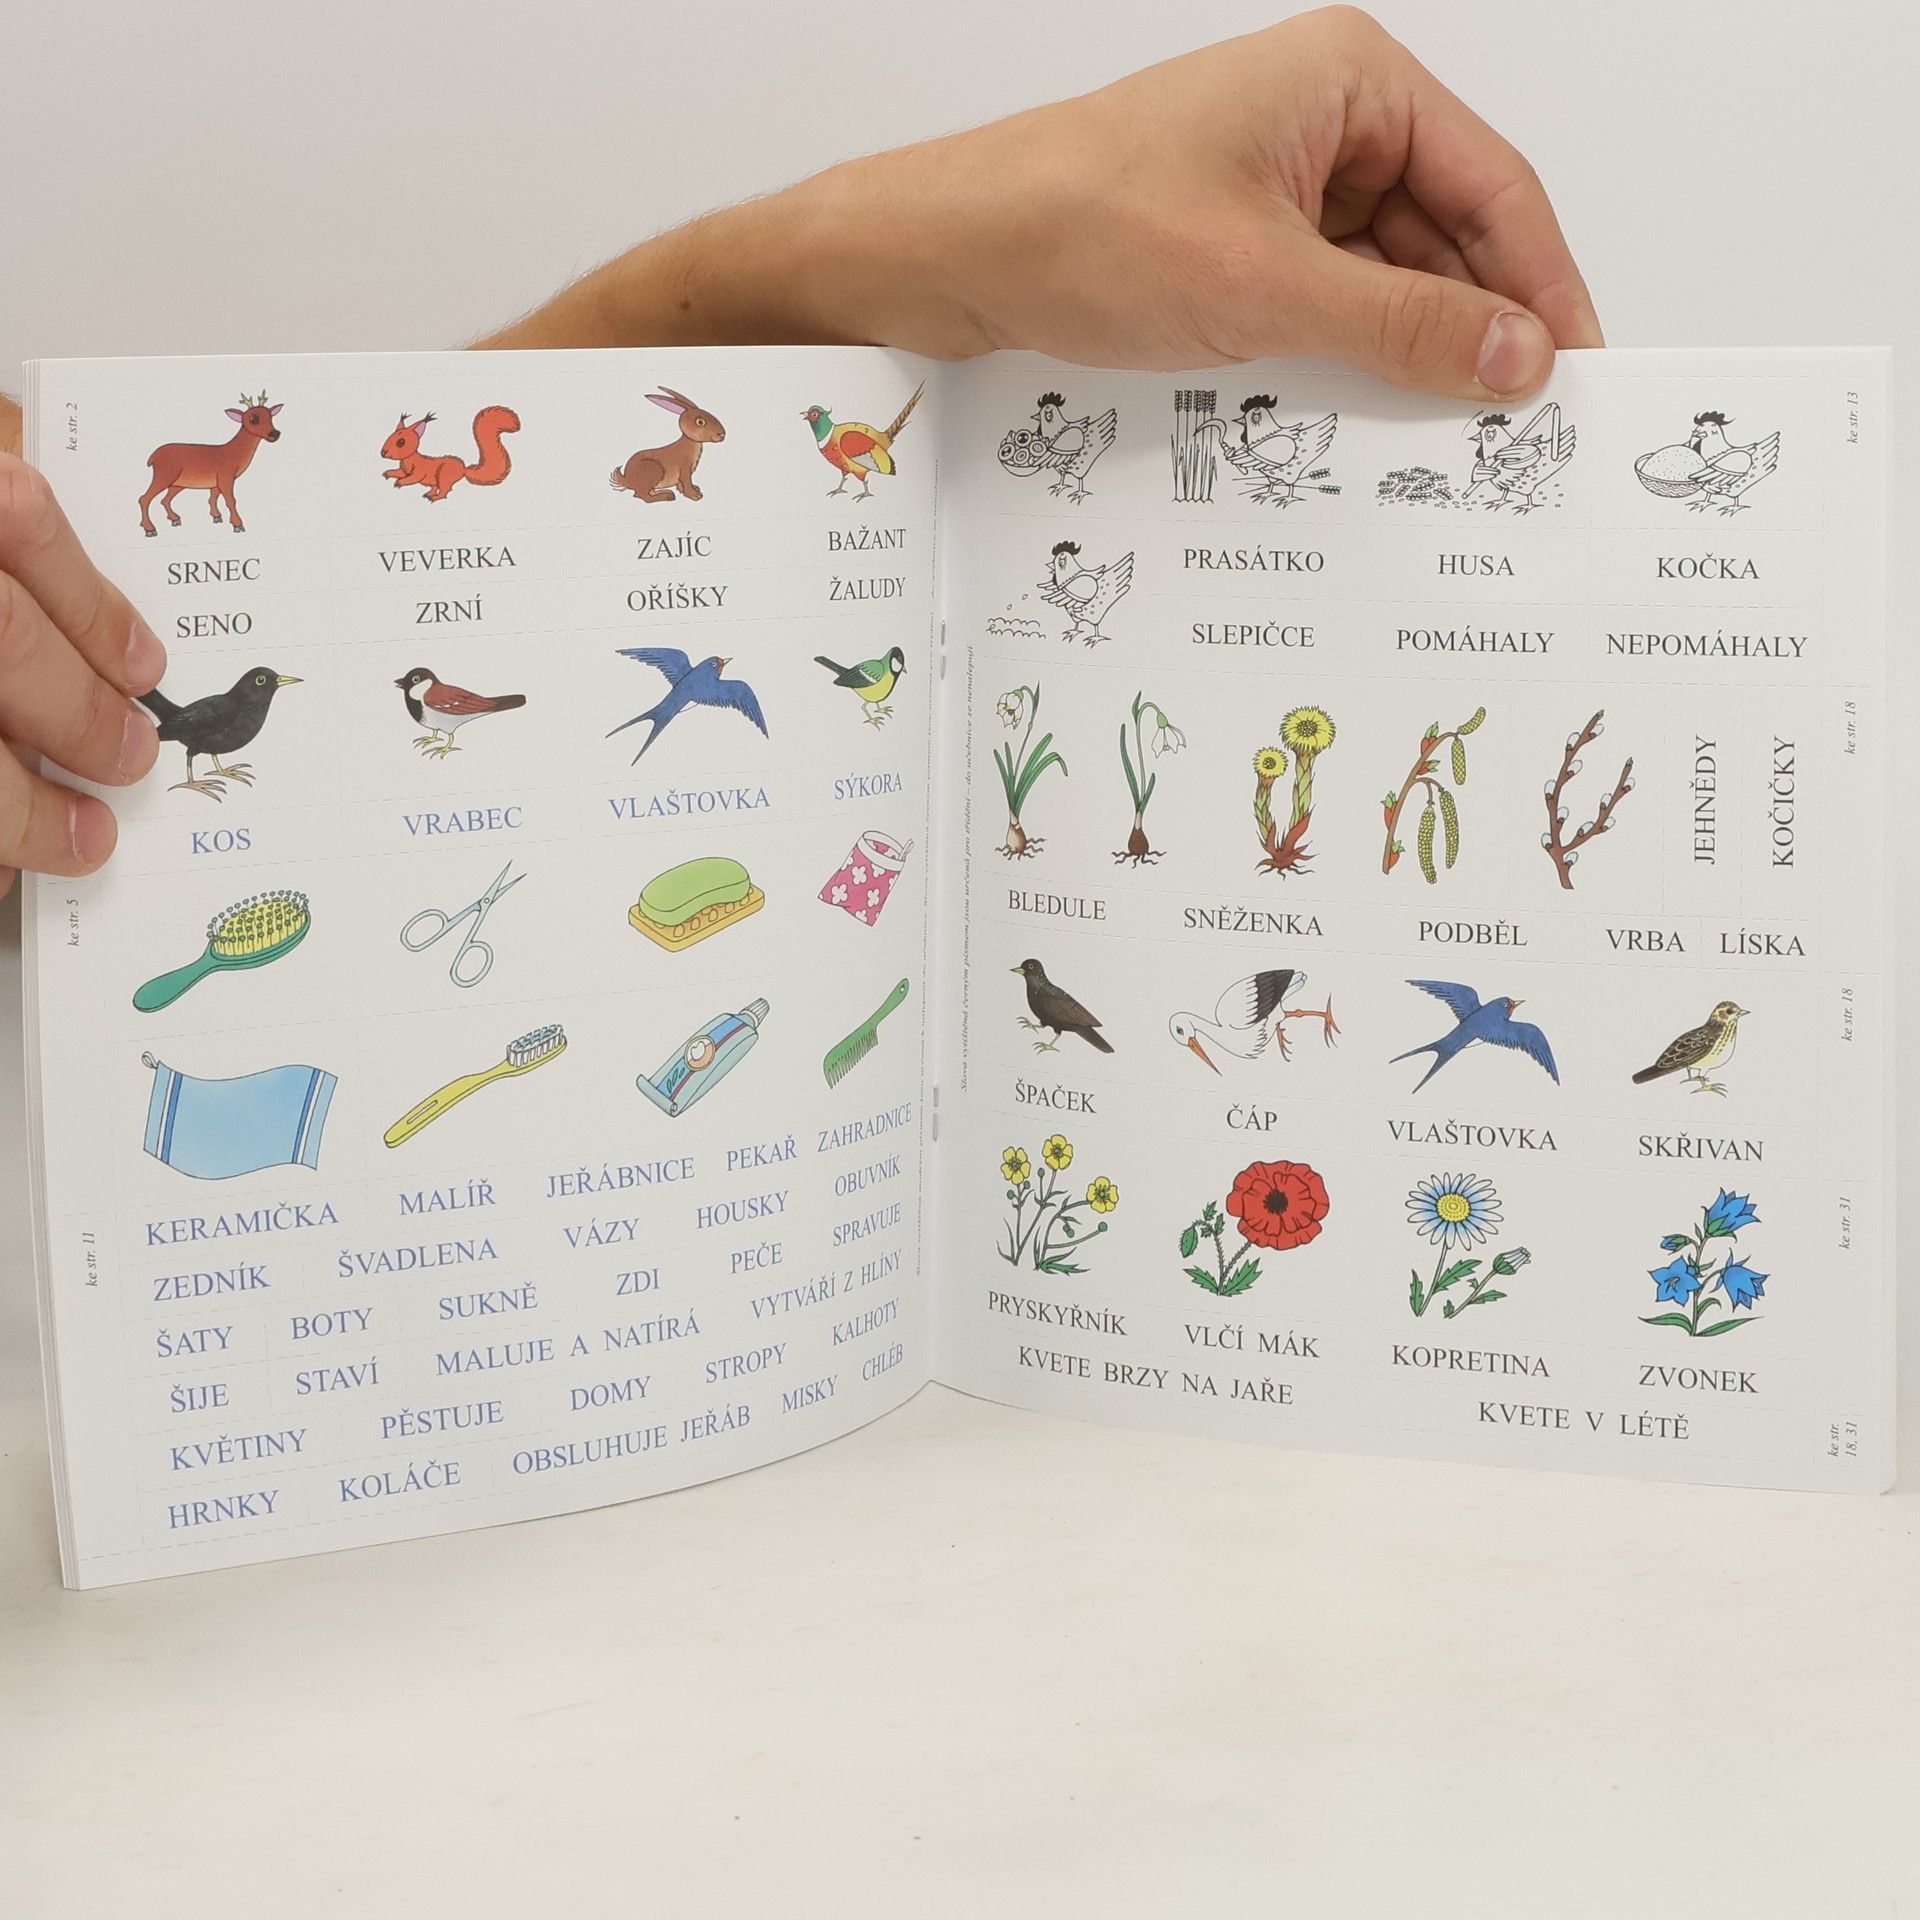 ke str. 2
SRNEC VEVERKA ZAJÍC BAŽANT
SENO ZRNÍ OŘÍŠKY ŽALUDY
KOS VRABEC VLAŠTOVKA SÝKORA
ke str. 5
ke str. 11
KERAMIČKA MALÍŘ JEŘÁBNICE PEKAŘ ZAHRADNICE
ZEDNÍK ŠVADLENA VÁZY HOUSKY OBUVNÍK
ŠATY BOTY SUKNĚ ZDI PEČE SPRAVUJE
ŠIJE STAVÍ MALUJE A NATÍRÁ VYTVÁŘÍ Z HLÍNY
KVĚTINY PĚSTUJE DOMY STROPY KALHOTY
HRNKY KOLÁČE OBSLUHUJE JEŘÁB MISKY CHLÉB
ke str. 13
PRASÁTKO HUSA KOČKA
SLEPIČCE POMÁHALY NEPOMÁHALY
ke str. 18
JEHNĚDY
KOČIČKY
BLEDULE SNĚŽENKA PODBĚL VRBA LÍSKA
ke str. 18
ŠPAČEK ČÁP VLAŠTOVKA SKŘIVAN
ke str. 31
PRYSKYŘNÍK VLČÍ MÁK KOPRETINA ZVONEK
KVETE BRZY NA JAŘE KVETE V LÉTĚ
ke str.
18, 31
Slova vytištěná černým písmem jsou určená pro třídění – do učebnice se nenalepují.